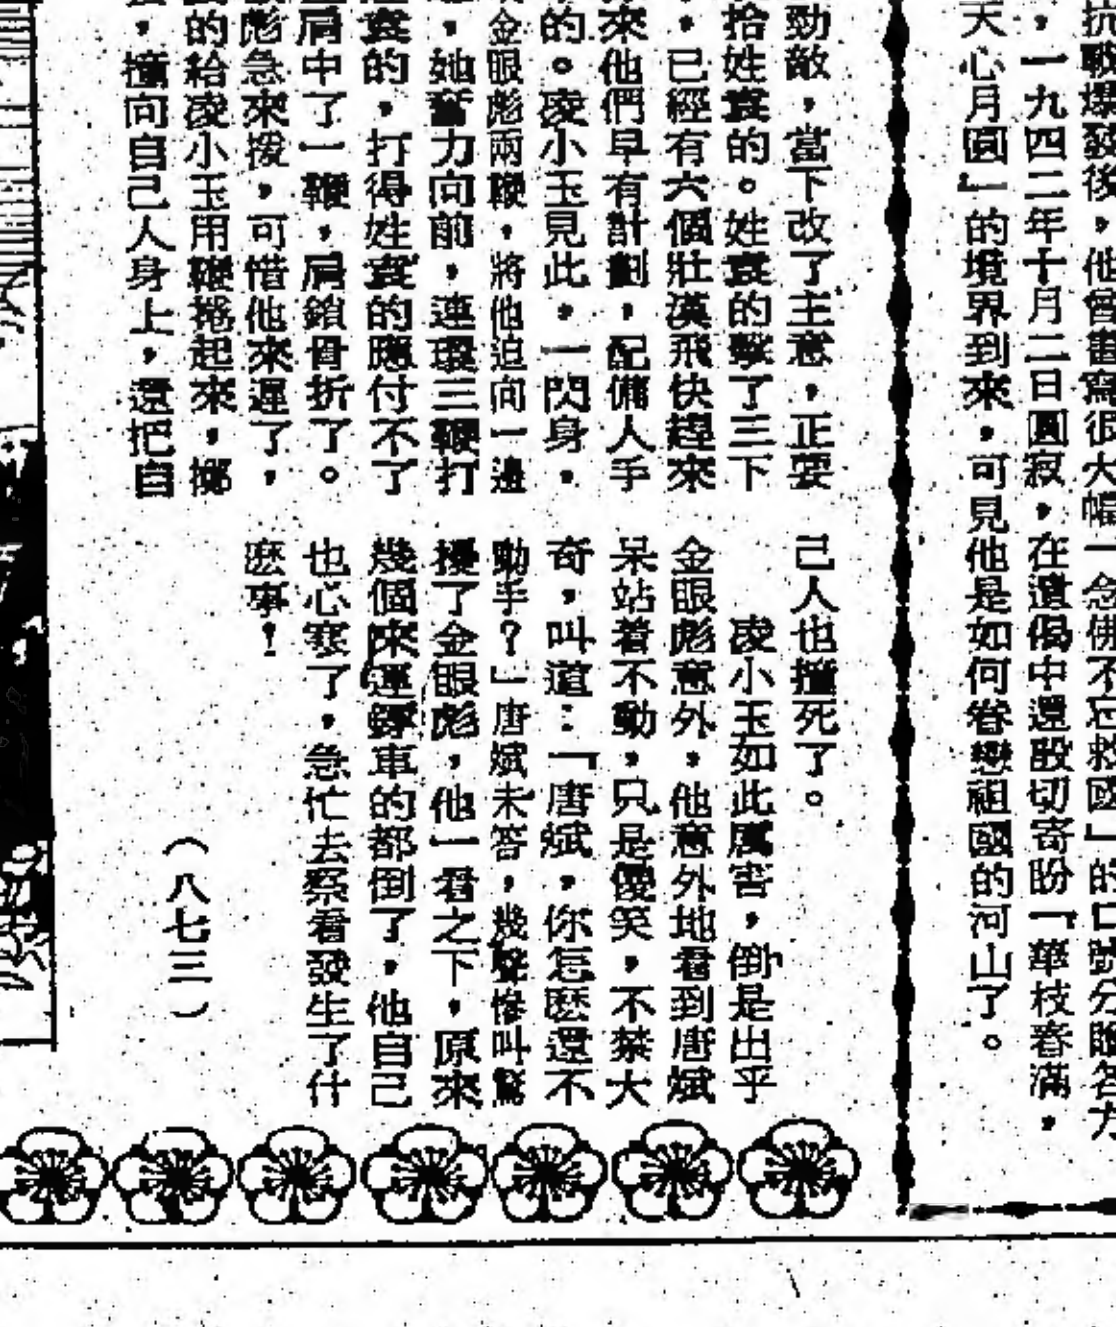 抗戰爆發後，他曾書寫很大幅「念佛不忘救國」的口號分贈各方
，一九四二年十月二日圓寂，在遺偈中還殷切寄盼「華枝春滿，
天心月圓」的境界到來，可見他是如何眷戀祖國的河山了。
勁敵，當下改了主意，正要
拾姓袁的。姓袁的擊了三下
，已經有六個壯漢飛快趕來
來他們早有計劃，配備人手
的。凌小玉見此，一閃身，
金眼彪兩鞭，將他迫向一邊
，她奮力向前，連環三鞭打
袁的，打得姓袁的應付不了
肩中了一鞭，肩鎖骨折了。
彪急來援，可惜他來遲了，
的給凌小玉用鞭捲起來，擲
，撞向自己人身上，還把自
己人也撞死了。
凌小玉如此厲害，倒是出乎
金眼彪意外，他意外地看到唐斌
呆站着不動，只是傻笑，不禁大
奇，叫道：「唐斌，你怎麽還不
動手？」唐斌未答，幾聲慘叫驚
擾了金眼彪，他一看之下，原來
幾個隊運鏢車的都倒了，他自己
也心寒了，急忙去察看發生了什
麽事！
（八七三）